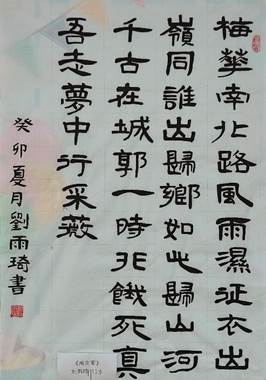 梅華南北路風雨濕征衣出
嶺同誰出歸鄉如此歸山河
千古在城郭一時非餓死真
吾志夢中行采薇
癸卯夏月劉雨琦書
《南安軍》